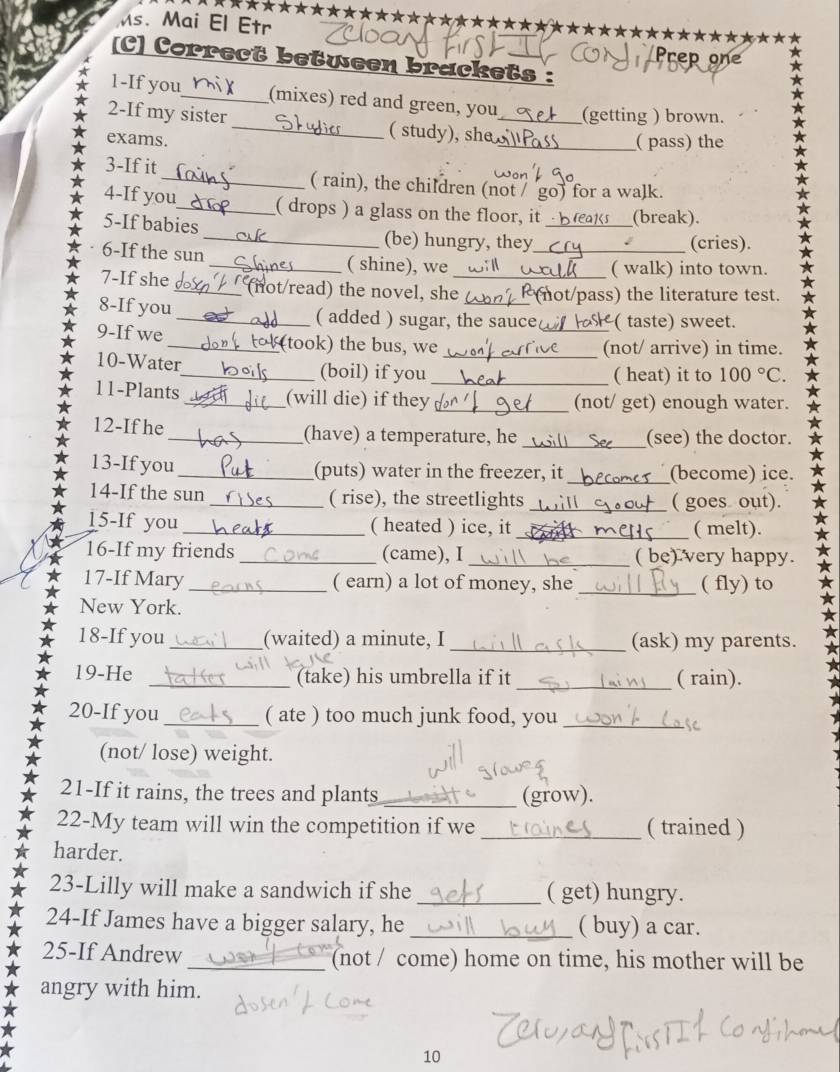 Ms. Mai El Etr
Zeloand first If condi
Prep one
[C] Correct between brackets :
1-If you mix (mixes) red and green, you get (getting ) brown.
2-If my sister Studies ( study), she will Pass ( pass) the
exams.
won't go
3-If it rains ( rain), the children (not / go) for a walk.
4-If you drop ( drops ) a glass on the floor, it breaks (break).
5-If babies are (be) hungry, they cry (cries).
6-If the sun Shines ( shine), we will walk ( walk) into town.
7-If she dosen't read (not/read) the novel, she won't Pass (not/pass) the literature test.
8-If you add ( added ) sugar, the sauce will taste ( taste) sweet.
9-If we don't take (took) the bus, we won't arrive (not/ arrive) in time.
10-Water boils (boil) if you heat ( heat) it to 100 °C.
11-Plants die (will die) if they don't get (not/ get) enough water.
12-If he has (have) a temperature, he will See (see) the doctor.
13-If you Put (puts) water in the freezer, it becomes (become) ice.
14-If the sun rises ( rise), the streetlights will go out ( goes out).
15-If you heat ( heated ) ice, it melts ( melt).
16-If my friends come (came), I will be ( be) very happy.
17-If Mary earns ( earn) a lot of money, she will Fly ( fly) to
New York.
18-If you wait (waited) a minute, I will ask (ask) my parents.
will take
19-He (take) his umbrella if it rains ( rain).
20-If you eats ( ate ) too much junk food, you won't lose
(not/ lose) weight.
will
21-If it rains, the trees and plants (grow).
22-My team will win the competition if we traines ( trained )
harder.
23-Lilly will make a sandwich if she gets ( get) hungry.
24-If James have a bigger salary, he will buy ( buy) a car.
25-If Andrew won't come (not / come) home on time, his mother will be
angry with him.
dosen't Come
10